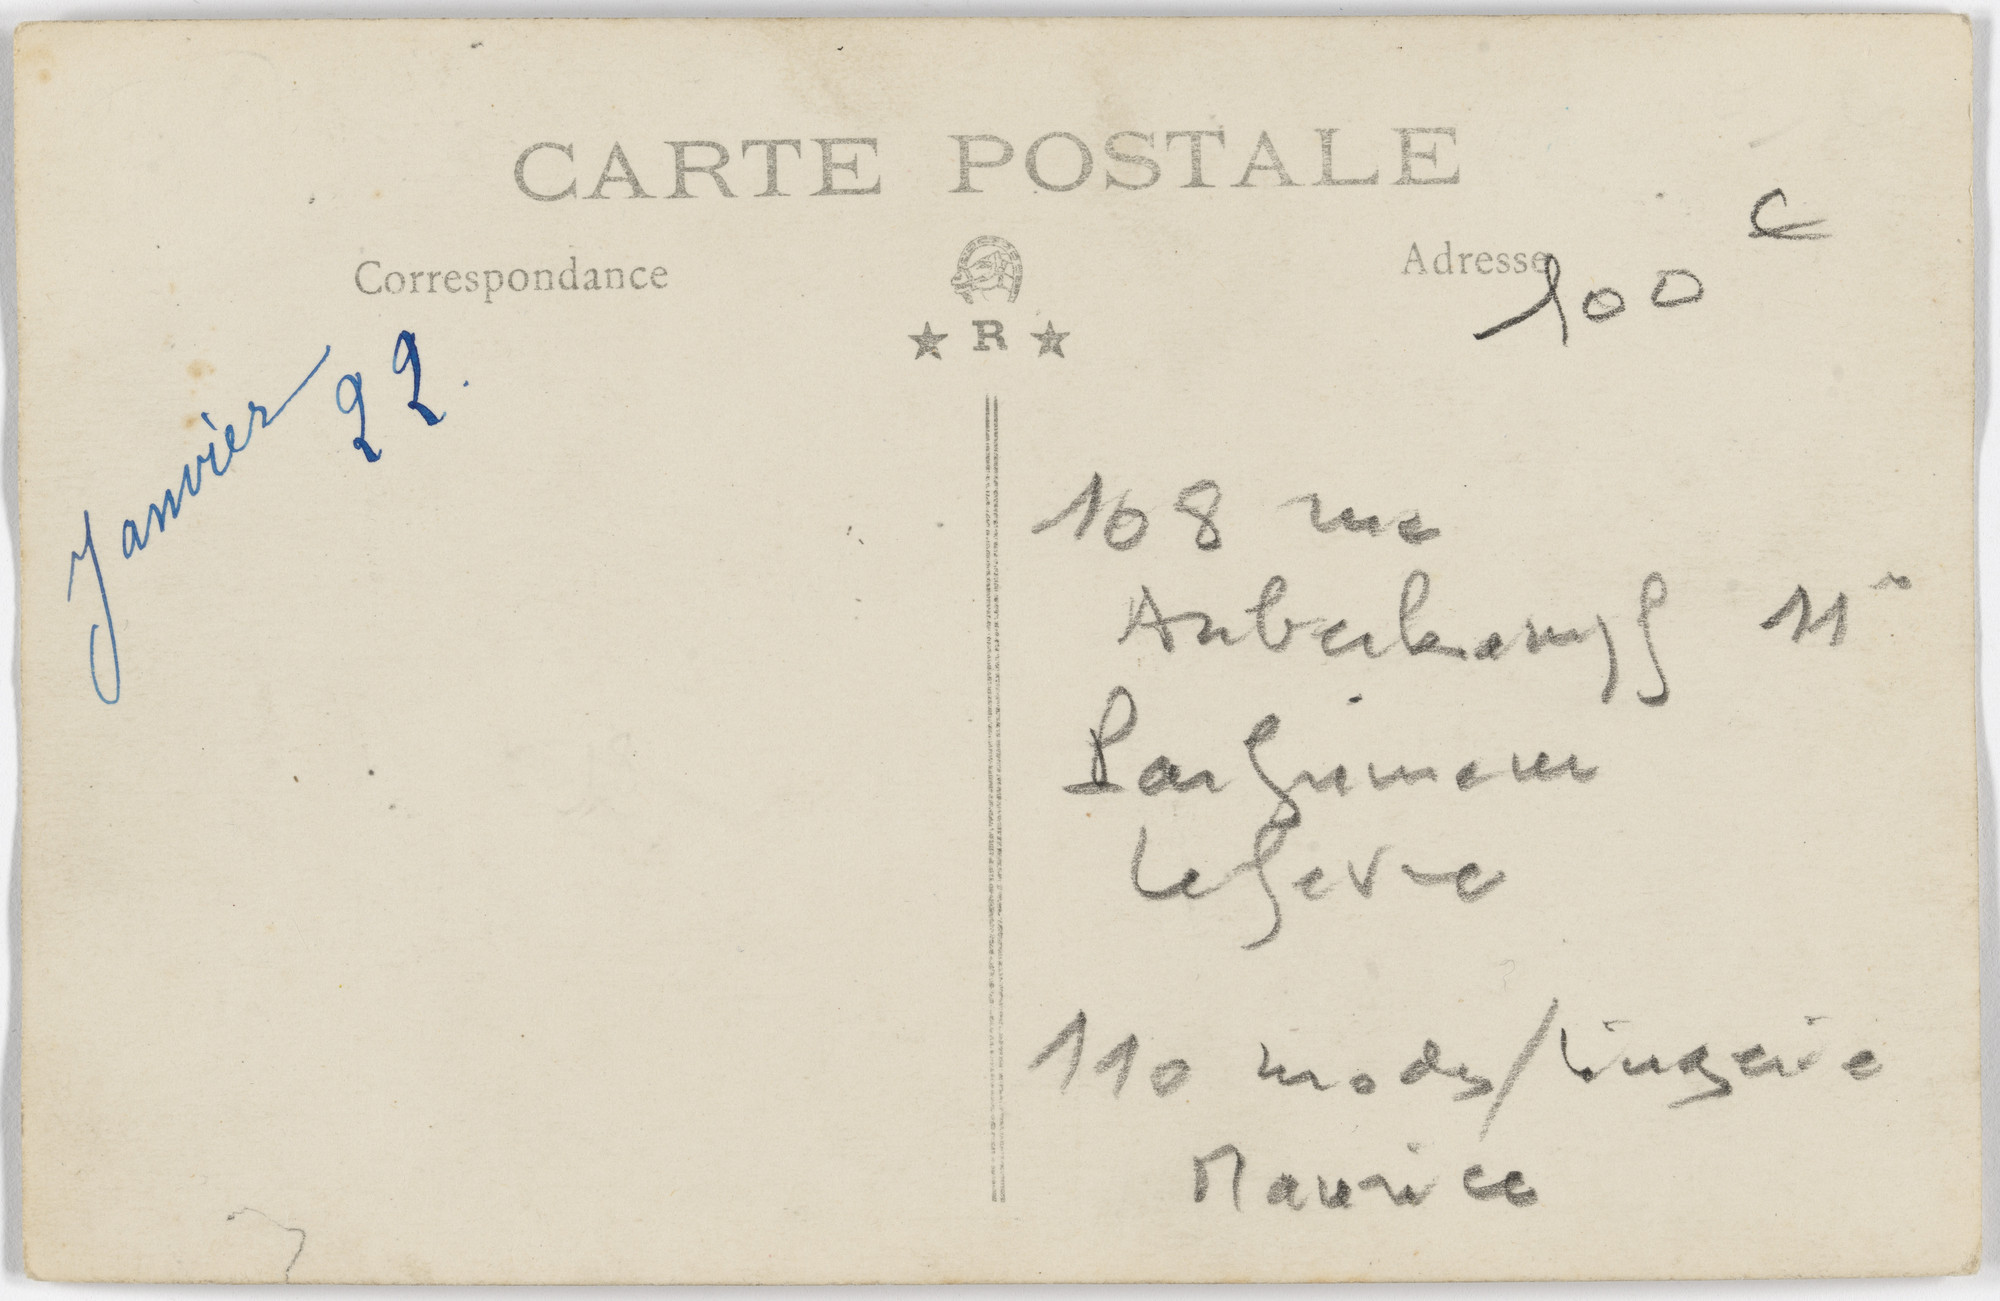 CARTE POSTALE
Correspondance
Adresse
★ R ★
100
Janvier 22.
108 rue
Auberkampf 11e
Parfumeur
Lefevre
110 modes/lingerie
Maurice